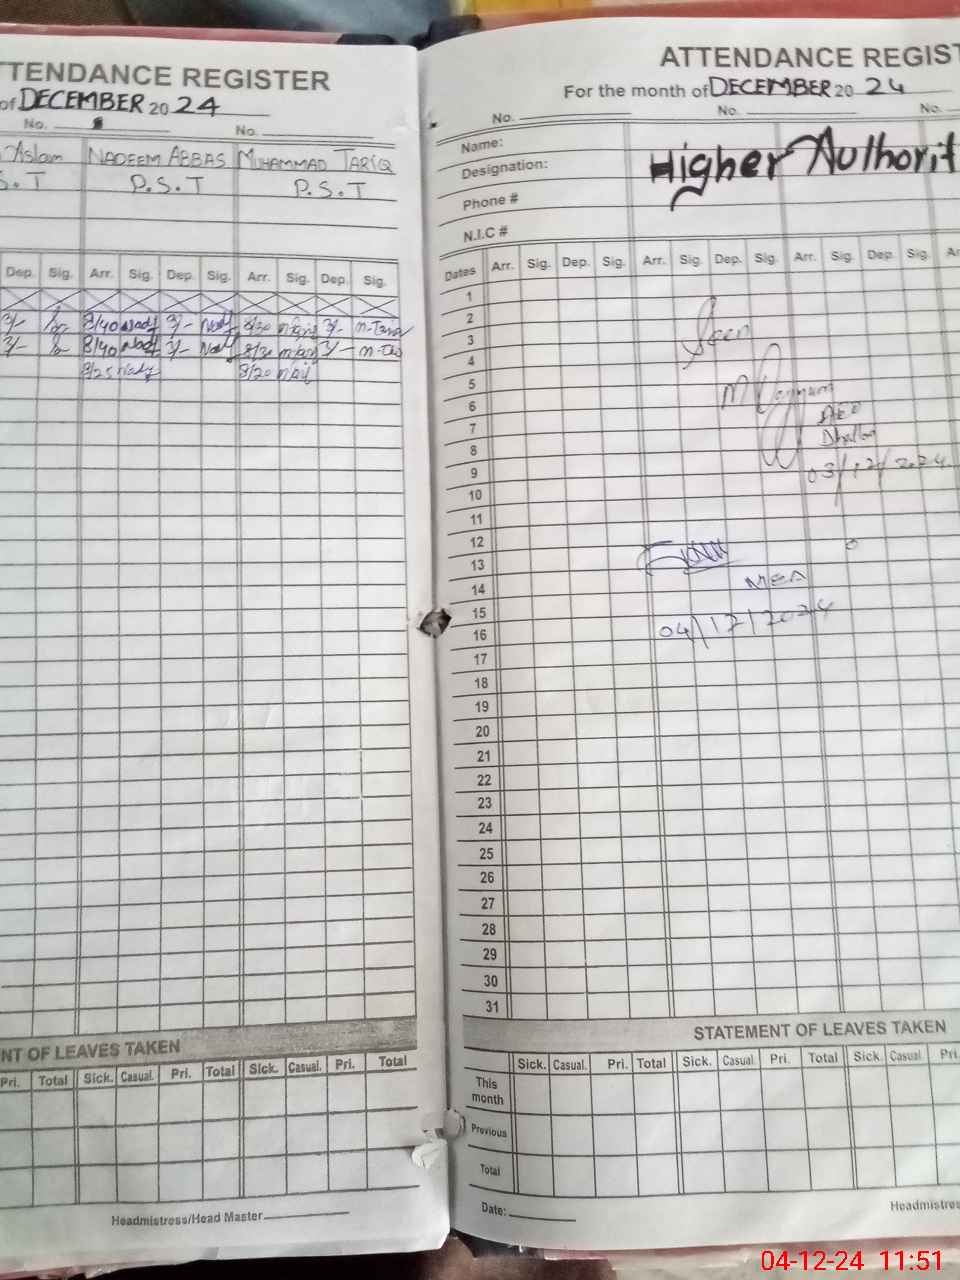 TTENDANCE REGISTER
of DECEMBER 20 24
No. No.
Aslam NADEEM ABBAS MUHAMMAD TARIQ
S.T P.S.T P.S.T
Dep. Sig. Arr. Sig. Dep. Sig. Arr. Sig. Dep. Sig.
3/- 8/40 Nadf 3/- Nadf 8/30 3/- m-Tariq
3/- 8/40 3/- 8/30 3/-
8/25 8/20
NT OF LEAVES TAKEN
Pri. Total Sick. Casual. Pri. Total Sick. Casual. Pri. Total
Headmistress/Head Master
ATTENDANCE REGIST
For the month of DECEMBER 20 24
No. No. No.
Name:
Higher Authorit
Designation:
Phone #
N.I.C #
Dates Arr. Sig. Dep. Sig. Arr. Sig. Dep. Sig. Arr. Sig. Dep. Sig. Ar
1
2
Seen
3
4
5
6
AEO
7
8
9
03/12/2024
10
11
12
13
MEA
14
15
04/12/2024
16
17
18
19
20
21
22
23
24
25
26
27
28
29
30
31
STATEMENT OF LEAVES TAKEN
Sick. Casual. Pri. Total Sick. Casual. Pri. Total Sick. Casual Pri.
This
month
Previous
Total
Date:
Headmistres
04-12-24 11:51